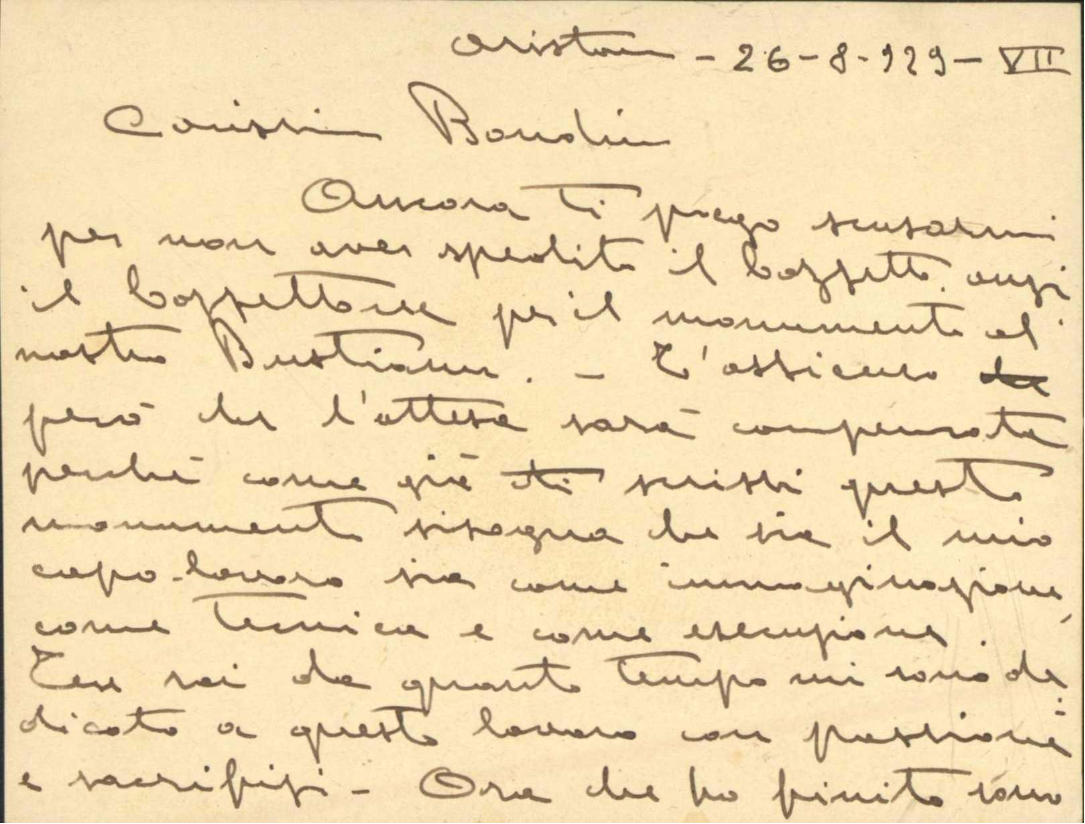 Oristano - 26-8-929 - VII
Carissimo Bandin
Ancora ti prego scusarmi
per non aver spedito il bozzetto, anzi
il bozzettone per il monumento al
nostro Bustianu. - T'assicuro che
però che l'attesa sarà compensata
perchè come già ti scrissi questo
monumento bisogna che sia il mio
capo-lavoro sia come immaginazione,
come tecnica e come esecuzione.
Tu sai da quanto tempo mi sono de
dicato a questo lavoro con passione
e sacrifizi - Ora che ho finito sono